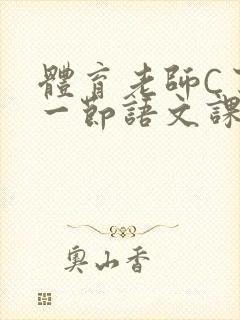 體育老師C
一節語文課
奧山香